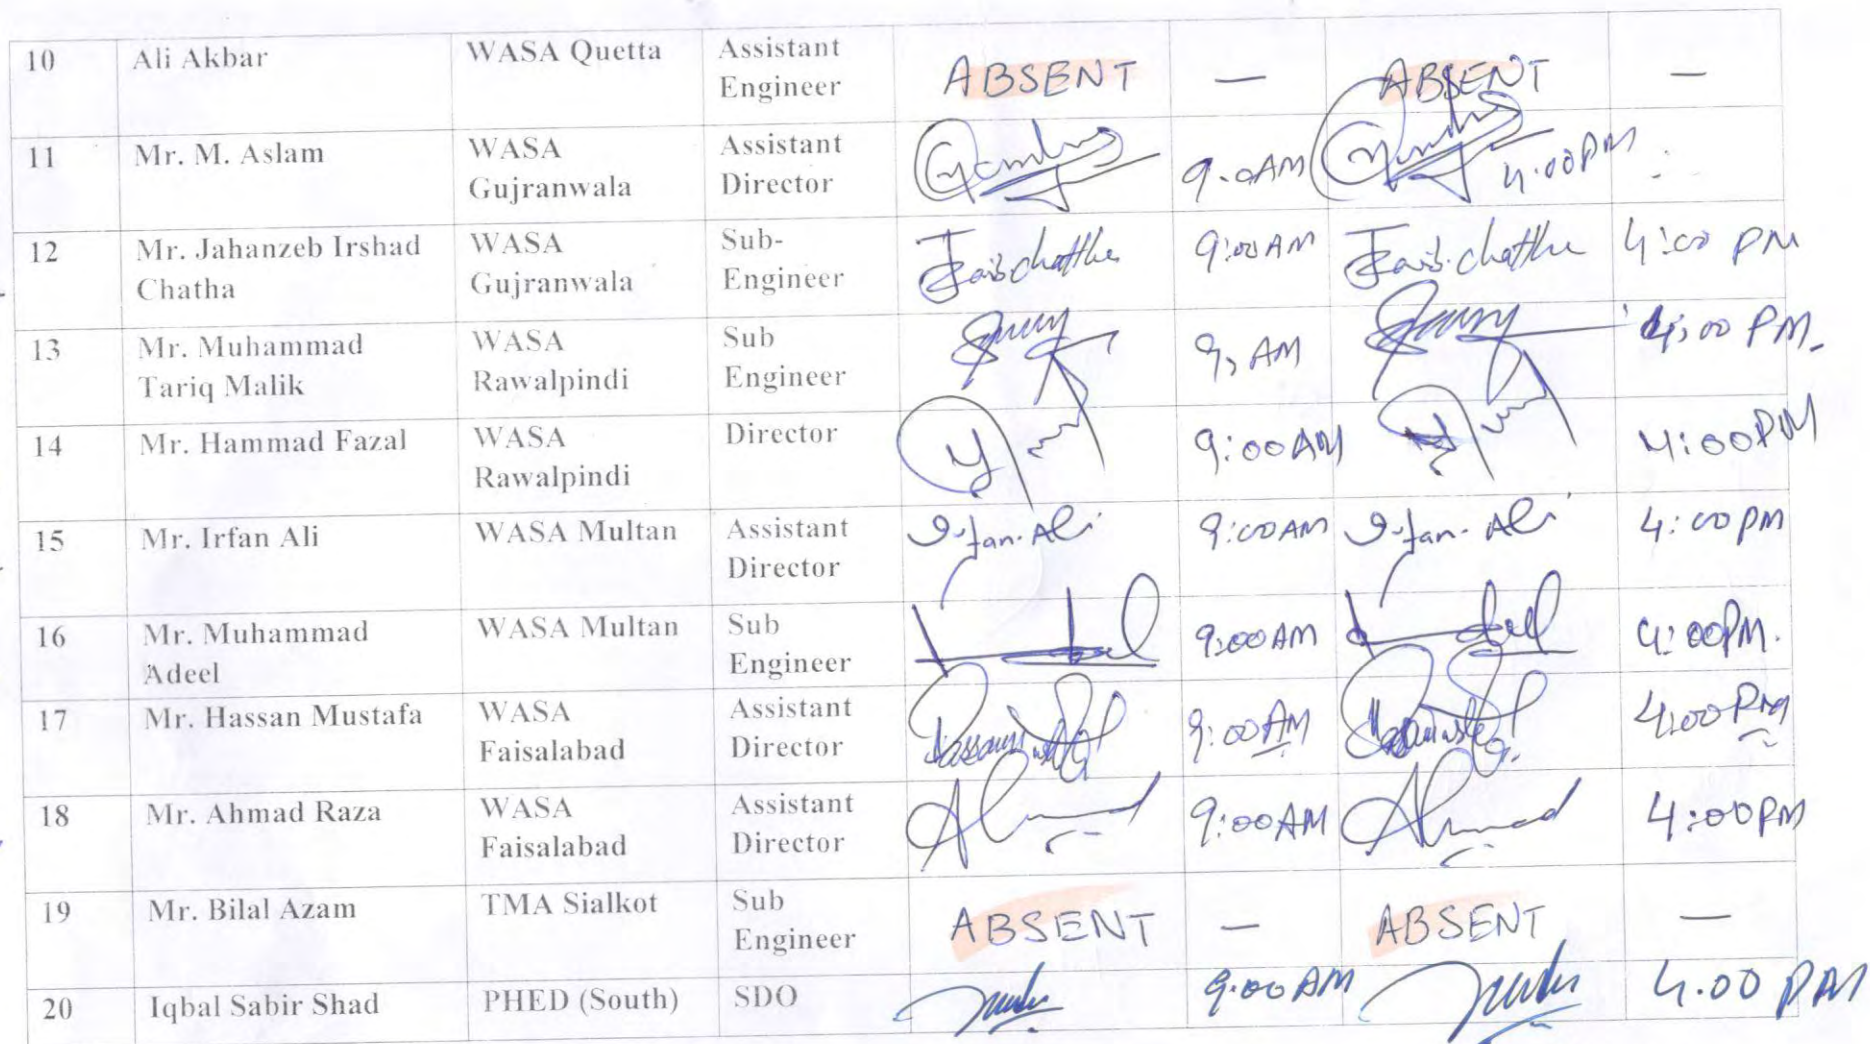 10 Ali Akbar WASA Quetta Assistant Engineer ABSENT — ABSENT —
11 Mr. M. Aslam WASA Gujranwala Assistant Director 9.0AM 4.00PM
12 Mr. Jahanzeb Irshad Chatha WASA Gujranwala Sub-Engineer 9:00AM 4:00 PM
13 Mr. Muhammad Tariq Malik WASA Rawalpindi Sub Engineer 9, AM 4:00 PM.
14 Mr. Hammad Fazal WASA Rawalpindi Director 9:00AM 4:00PM
15 Mr. Irfan Ali WASA Multan Assistant Director Irfan. Ali 9:00AM Irfan. Ali 4:00PM
16 Mr. Muhammad Adeel WASA Multan Sub Engineer 9:00AM 4:00PM.
17 Mr. Hassan Mustafa WASA Faisalabad Assistant Director 9:00AM 4:00PM
18 Mr. Ahmad Raza WASA Faisalabad Assistant Director Ahmad 9:00AM Ahmad 4:00PM
19 Mr. Bilal Azam TMA Sialkot Sub Engineer ABSENT — ABSENT —
20 Iqbal Sabir Shad PHED (South) SDO 9.00AM 4.00 PM